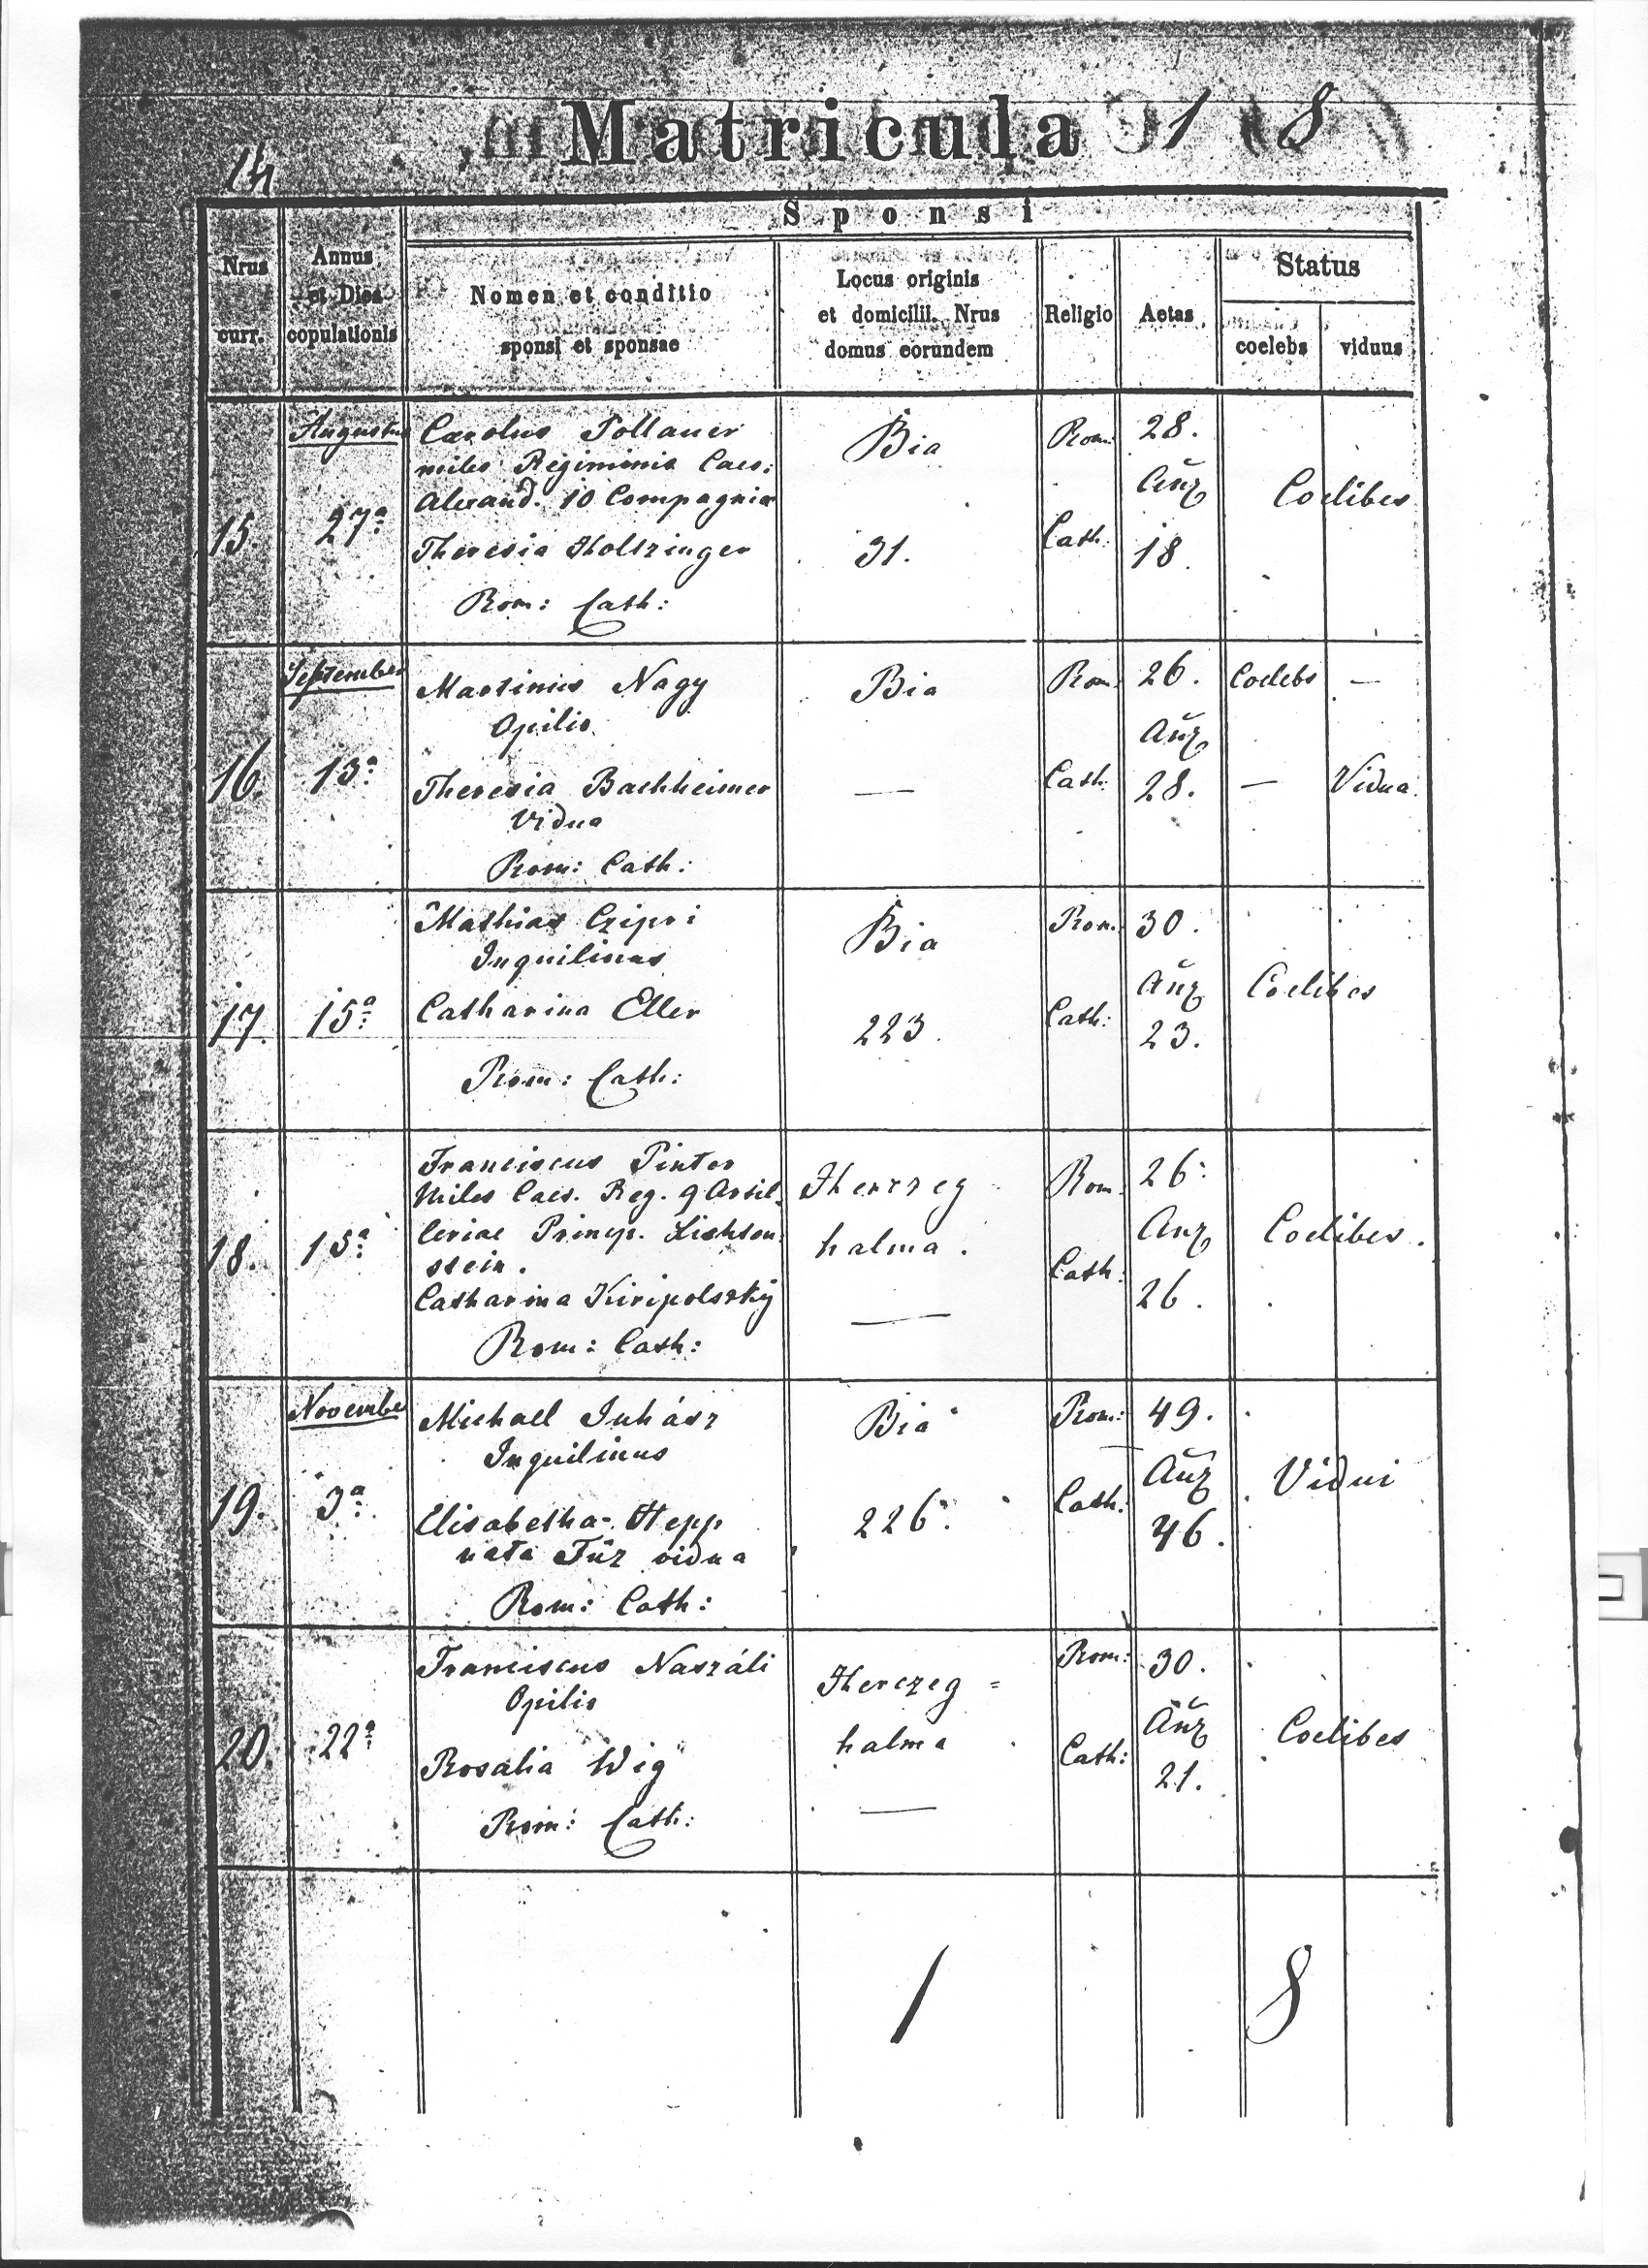 Matricula 1 8
14
Sponsi
Nrus
curr.
Annus
et Dies
copulationis
Nomen et conditio
sponsi et sponsae
Locus originis
et domicilii. Nrus
domus eorundem
Religio
Aetas
Status
coelebs
viduus
15.
Augustus
27ª
Carolus Pollauer
miles Regiminis Caes:
Alexand. 10 Compagniae
Theresia Holtzinger
Rom: Cath:
Bia
31.
Rom:
Cath:
28.
Añz
18.
Coelibes
16.
September
13ª
Martinus Nagy
Opilio
Theresia Bachheimer
Vidua
Rom: Cath:
Bia
—
Rom:
Cath:
26.
Añz
28.
Coelebs —
— Vidua.
17.
15ª
Mathias Czipri
Inquilinus
Catharina Eller
Rom: Cath:
Bia
223.
Rom:
Cath:
30.
Añz
23.
Coelibes
18.
15ª
Franciscus Pinter
Miles Caes. Reg. 9 Artil-
leriae Princip. Lichten
stein.
Catharina Kiripolszký
Rom: Cath:
Herczeg
halma.
—
Rom:
Cath:
26.
Anz
26.
Coelibes.
19.
November
3ª
Michael Juhász
Inquilinus
Elisabetha Hepp
nata Füz vidua
Rom: Cath:
Bia
226.
Rom:
Cath:
49.
Añz
46.
Vidui
20.
22ª
Franciscus Naszáli
Opilio
Rosalia Wig
Rom: Cath:
Herczeg =
halma
—
Rom:
Cath:
30.
Añz
21.
Coelibes
1 8